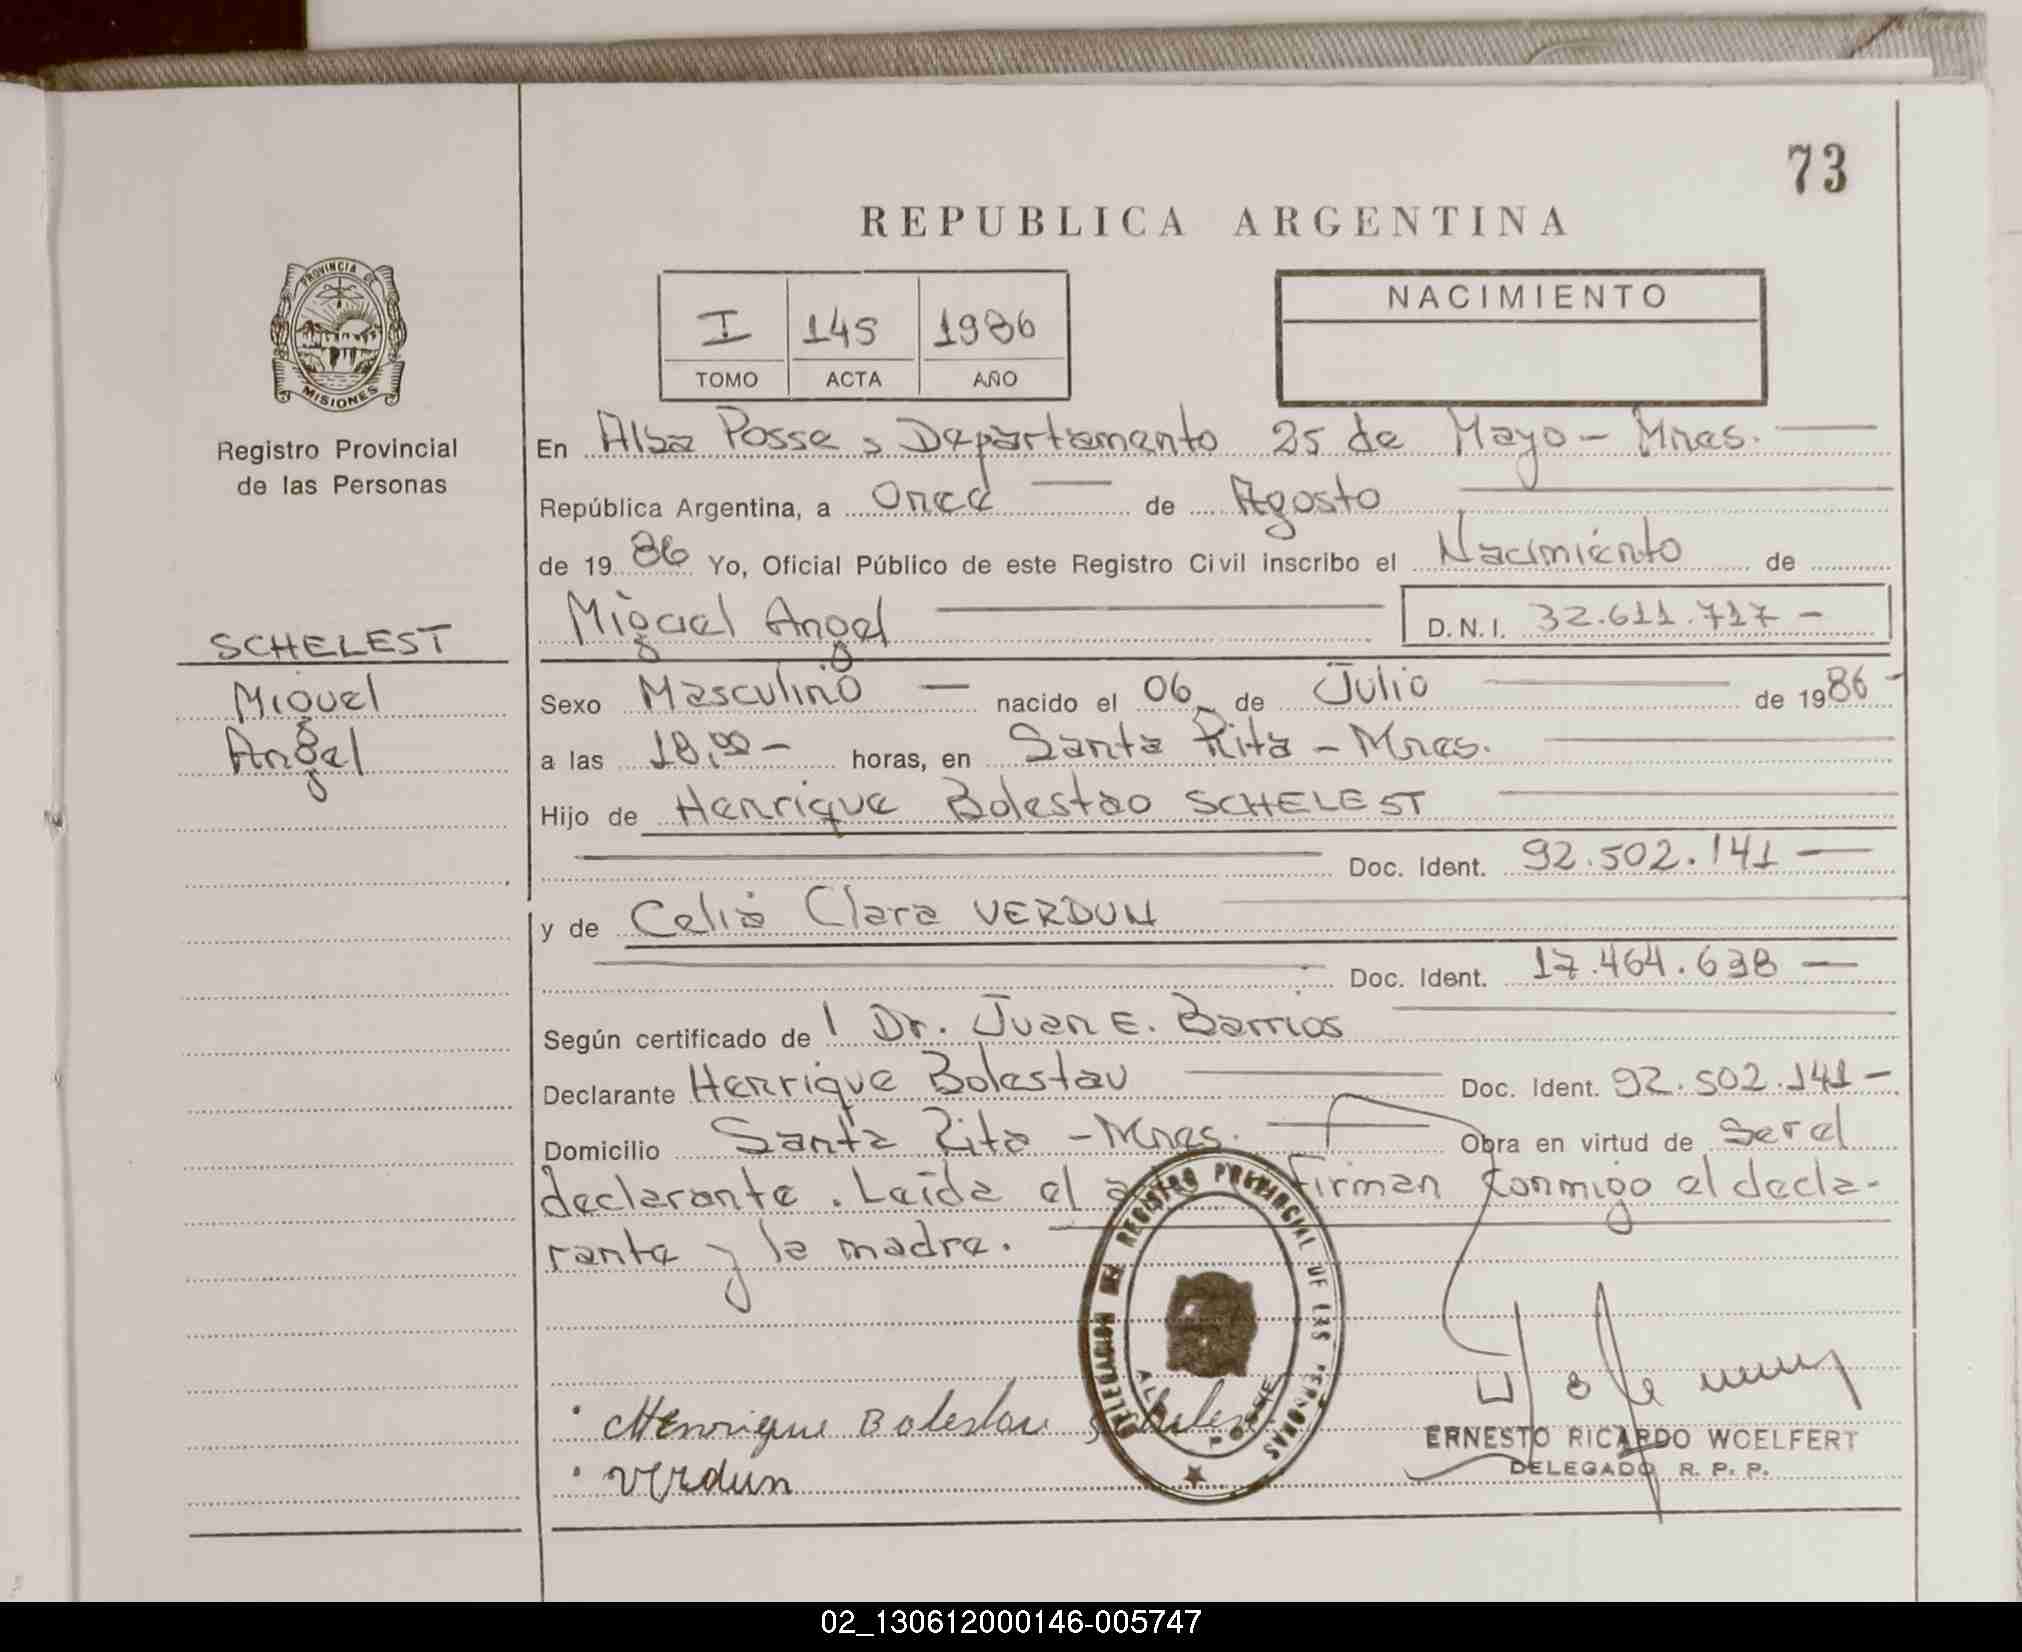 73
REPUBLICA ARGENTINA
PROVINCIA DE
MISIONES
Registro Provincial
de las Personas
I 145 1986
TOMO ACTA AÑO
NACIMIENTO
En Alba Posse, Departamento 25 de Mayo - Mnes.
República Argentina, a Once de Agosto
de 19 86 Yo, Oficial Público de este Registro Civil inscribo el Nacimiento de
Miguel Angel D.N.I. 32.611.717 -
SCHELEST
Miguel
Angel
Sexo Masculino — nacido el 06 de Julio de 1986 -
a las 18,00 - horas, en Santa Rita - Mnes.
Hijo de Henrique Bolestao SCHELEST
Doc. Ident. 92.502.141 —
y de Celia Clara VERDUN
Doc. Ident. 17.464.638 —
Según certificado de l Dr. Juan E. Barrios
Declarante Henrique Bolestau Doc. Ident. 92.502.141 -
Domicilio Santa Rita - Mnes. Obra en virtud de Ser el
declarante. Leída el Firman conmigo el decla-
rante y la madre.
DELEGACION DEL REGISTRO PROVINCIAL DE LAS PERSONAS
ALBA POSSE
Henrique Boleslau Schelest
Verdun
ERNESTO RICARDO WOELFERT
DELEGADO R. P. P.
02_130612000146-005747